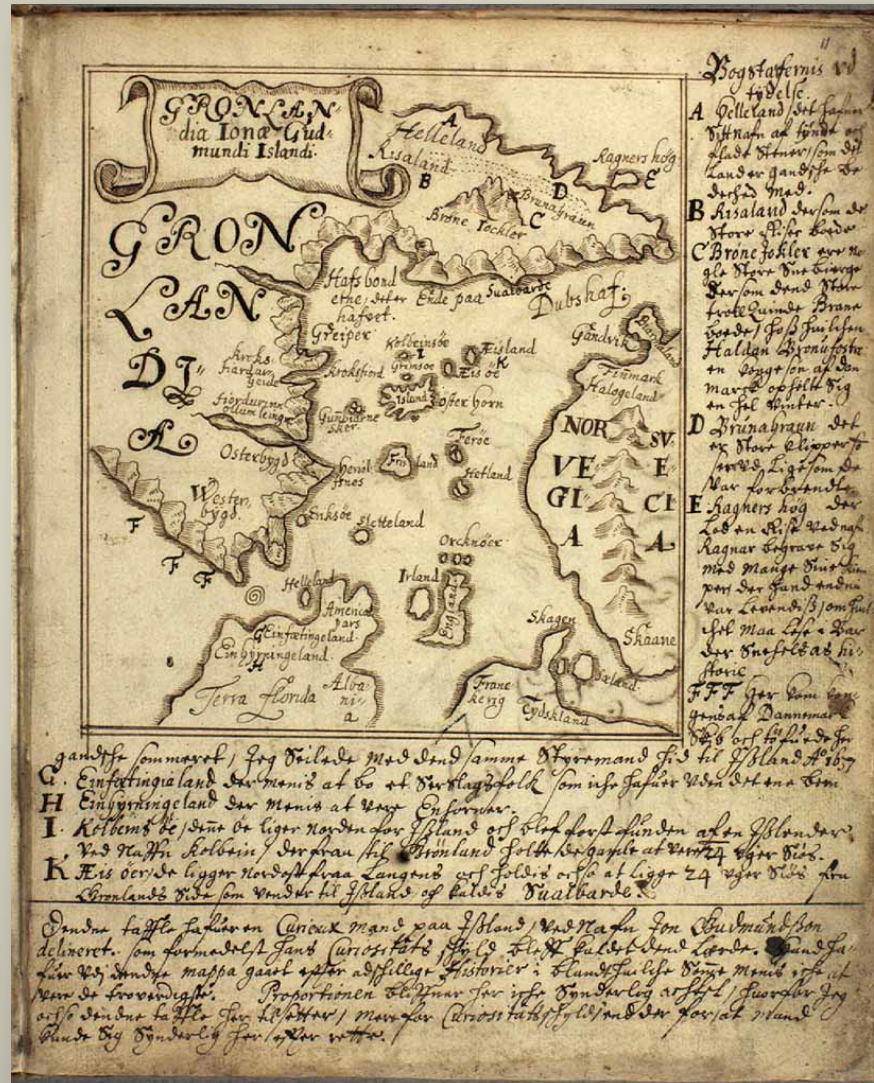 11
GRONLAN=
dia Ionæ Gud=
mundi Islandi.
GRON
LAN
DI=
A
A
Helleland
Risaland
B
Ragners hög
E
D
Brunahraun
C
Brøne Iockler
Hafsbond
ethe, det er
hafvet.
Ende paa Sualbarde
Dubshaf.
Greiper
Gandvik
Kolbeinsöe
I
Grimsöe
Æisland
K
Æis öe
Island
Osterhorn
Kroksfiord
Gunbiörne
Skier
Finmark
Halogeland
NOR
VE=
GI=
A
SV=
E=
CI
A
Osterbygd
Heriol
fsnes
Fris land
Feröe
Hetland
Wester=
bygd.
F
F F
Eriksöe
Setteland
Orcknöer
Helleland
Irland
England
America
pars
G Einfætingeland
Einhyrningeland
H
Terra florida
Alba=
ni=
a
Skagen
Skaane
Sæland
Franc=
kerig
Tydskland
Bogstafernis vd
tydelse.
A Helleland, det hafuer
Sit nafn af tynde och
flade Stener, som det
Land er gandsche be
decked med.
B Risaland der som de
Store Riser boede
C Brøne Jokler ere no
gle Store Snebierge
der som dend Store
troll Quinde Brøne
boede, hoß huilchen
Haldan Bronufostre
en Kongesøn af Dan
marck opholt Sig
en hel Vinter.
D Brunahraun det
er Store klipper
seer vd, Lige som de
var forbrendte
E Ragners hög der
Lod en Rise ved nafn
Ragnar begrave Sig
med mange Sine kem
per, der hand endnu
var Levendis, om huil
chet maa Lese i Bar
der Snefelsas hi=
storie
FFF Her kom kon
gens af Dannemarc
Skib och
gandsche sommeret, Jeg Seilede med dend samme Styremand hid til Ißland A°
G. Einfætingialand der menis at bo et Serslags folk som iche hafuer vden det ene been
H Einhyrningeland der menis at vere Enhorner.
I. Kolbeins öe, denne öe liger norden for Ißland och blef først funden af en Ißlender
ved Naffn Kolbein, derfraa til Grønland holte de gamle at vere 24 vger Siøs.
K Æis öer, de ligger Nordost fraa Langenes och holdis ochsa at ligge 24 vger Siøs fra
Gronlands Side som vender til Ißland, och kaldis Sualbarde.
Dendne taffle hafuer en Curieux mand paa Ißland, ved Nafn Jon Gudmundßon
delineret. som formedelst hans Curiositäts skyld bleff kaldet dend Lærde. Hand ha=
fuer vdi dendne mappa gaaet effter adschillige Historier i blandt huilche Somme menis iche at
vere de troverdigste. Proportionen bliffuer her iche Synderlig achtet, huorfor Jeg
ochsa dendne taffle her tilsetter, mere for Curiositäts skyld, end der for, at mand
kunde Sig Synderlig her effter rette.